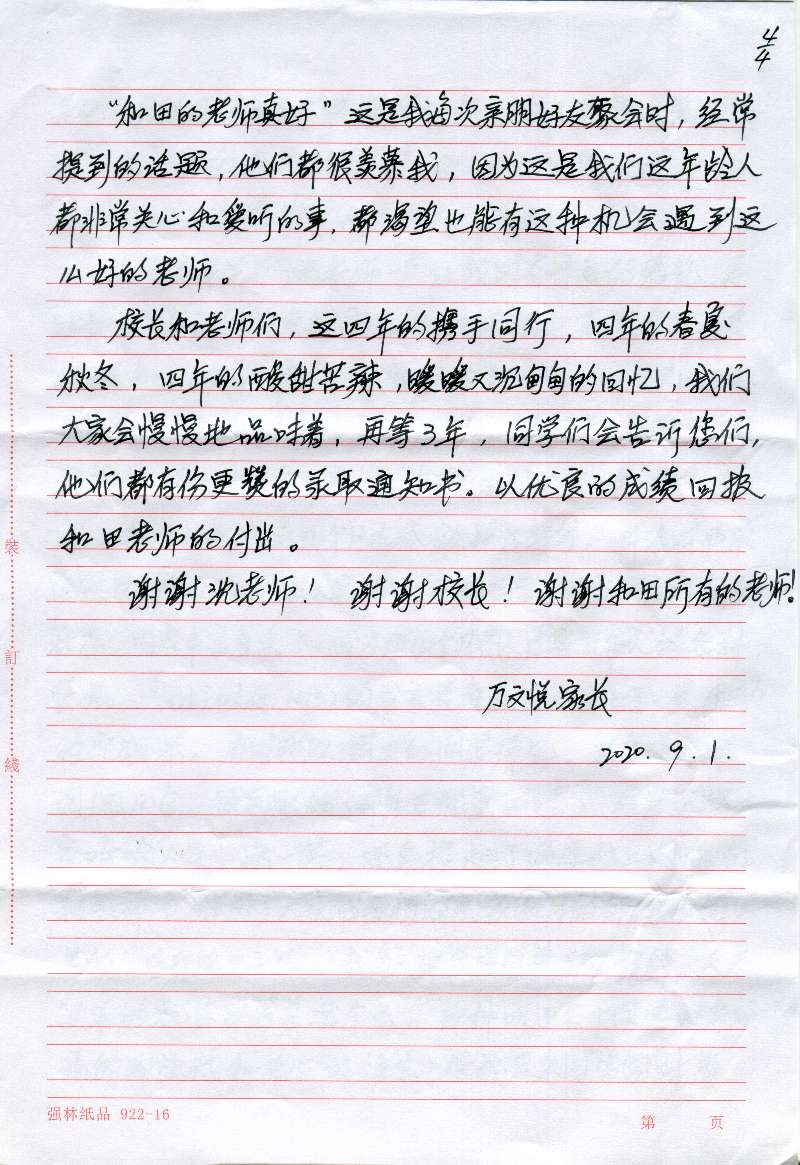 4/4
“和田的老师真好”这是我每次亲朋好友聚会时，经常
提到的话题，他们都很羡慕我，因为这是我们这年龄人
都非常关心和爱听的事，都渴望也能有这种机会遇到这
么好的老师。
校长和老师们，这四年的携手同行，四年的春夏
秋冬，四年的酸甜苦辣，暖暖又沉甸甸的回忆，我们
大家会慢慢地品味着，再等3年，同学们会告诉您们，
他们都有份更赞的录取通知书。以优良的成绩回报
和田老师的付出。
谢谢沈老师！ 谢谢校长！ 谢谢和田所有的老师！
万文悦家长
2020.9.1.
裝
訂
綫
强林纸品 922-16
第 页